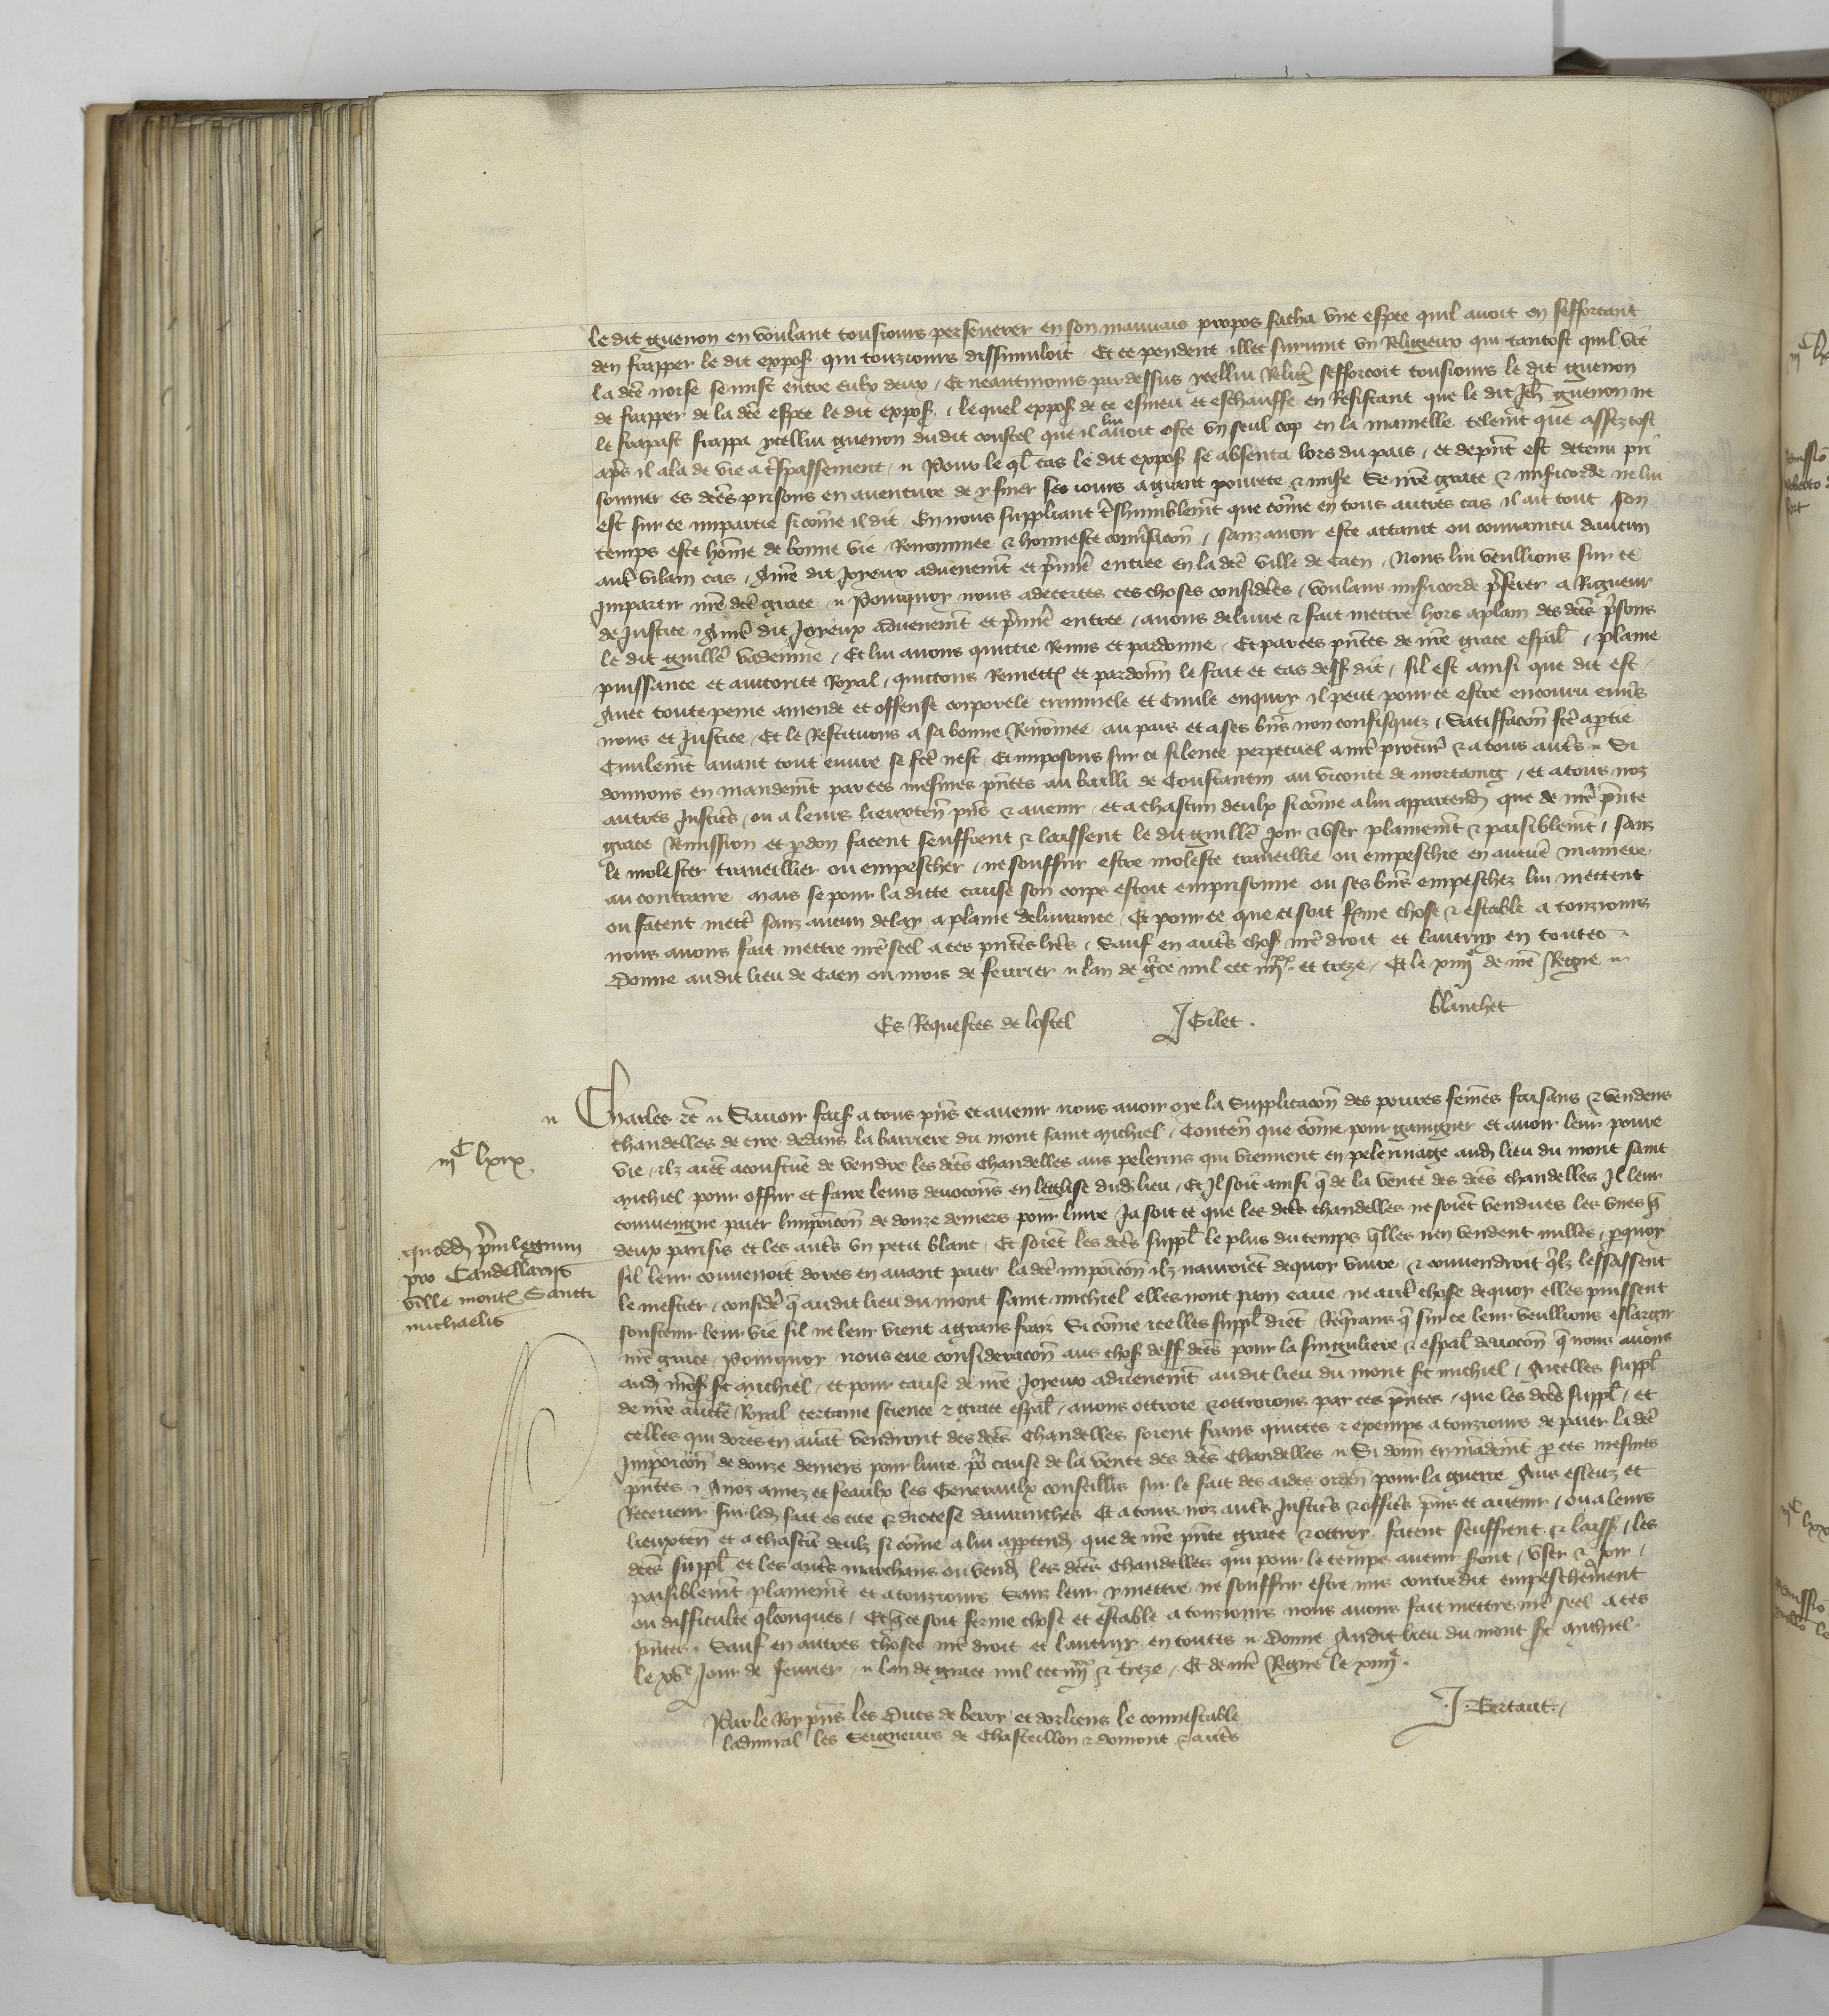 le dit guenon en voulant tousiours perseverer en son mauvais propos sacha une espee quil avoit en sefforcant
den frapper le dit expos qui touziours dissimuloit Et ce pendent illec survint un Religieux qui tantost quil vit
la dce noise se mist entre eulx deux / Et neantmoins par dessus ycellui Relig sefforcoit tousiours le dit guenon
de frapper de la dce espee le dit expos / lequel expos de ce esmeu et eschauffe en Resistant que le dit Jeh guenon ne
le frapast frappa ycellui guenon dudit coustel que il lui avoit oste un seul cop en la mamelle telemt que assez tost
apres il ala de vie a trespassement / Pour le ql cas le dit expos se absenta lors du pais / et depnt est detenu pri
sonnier es dces prisons en aventure de y finer ses iours a grant povrete & mise Se nre grace & misicorde ne lui
est sur ce impartie si come il dit En nous suppliant treshumblemt que come en tous autres cas il ait tout son
temps este home de bonne vie Renommee & honneste convsacon / sanz avoir este attaint ou convaincu daucun
autre vilain cas / A nre dit Joyeux advenemt et premie entree en la dce ville de Caen / Nous lui veullions sur ce
Impartir nre dce grace Pourquoy nous adecertes ces choses considees / voulans misicorde preferer a Rigueur
de Justice A nre dit Joyeux advenemt et premie entree / avons delivre & fait mettre hors a plain des dces prisons
le dit guille vadenne / Et lui avons quittie Remis et pardonne / Et par ces pntes de nre grace espal / plaine
puissance et auctorite Royal / quictons Remett et pardonn le fait et cas dess dit / sil est ainsi que dit est /
Avec toute peine amende et offense corporele criminele et Civile en quoy il peut pour ce estre encouru envs
nous et Justice / Et le Restituons a sa bonne Renommee au pais et a ses bns non confisquez / Satisfacon fce a ptie
Civilemt avant tout euvre se fce nest Et imposons sur ce silence perpetuel a nre procur & a tous autrs Si
donnons en mandemt par ces mesmes pntes au bailli de Coustantin au viconte de mortaing / et a tous noz
autres Justics / ou a leurs lieuxten pns & avenir / et a chascun deulx si come a lui appartend que de nre pnte
grace Remission et pdon facent seuffrent & laissent le dit guille joir & user plainemt & paisiblemt / sanz
le molester traveillier ou empescher / ne souffrir estre moleste traveillie ou empeschie en aucune maniere
au contraire Mais se pour la ditte cause son corps estoit emprisonne ou ses bns empeschez lui mettent
ou facent mett sanz aucun delay a plaine delivrance Et pour ce que ce soit ferme chose & estable a touziours
nous avons fait mettre nre seel a ces pntes lres / Sauf en autrs chos nre droit et lautruy en toutes
Donne audit lieu de Caen ou mois de fevrier lan de grce mil ccc iiiixx et treze / Et le xiiiie de nre Regne
blanchet
Es Requestes de lostel J Gilet
Charles etc Savoir fais a tous pns et avenir nous avoir oye la Supplicacon des povres femes faisans & vendens
chandelles de cire dedans la barriere du mont saint Michiel / Conten que come pour gaingnier et avoir leur povre
vie / ilz aient acoustume de vendre les dces chandelles aus pelerins qui viennent en pelerinage aud lieu du mont saint
Michiel pour offrir et faire leurs devocons en leglise dud lieu / Et Il soit ainsi q de la vente des dces chandelles Il leur
conviengne paier limposicon de douze deniers pour livre Ja soit ce que les dces chandelles ne soient vendues les unes q
deux parisis et les autrs un petit blanc / Et soient les dces suppl le plus du temps qlles nen vendent nulles / pquoy
sil leur convenoit dores en avant paier la dce imposicon ilz nauroient dequoy vivre & convendroit qlz lessassent
le mestier / considere q audit lieu du mont saint michiel elles nont pain eaue ne autre chose dequoy elles puissent
soustenir leur vie sil ne leur vient a grans fraiz Si come icelles suppl dient Requerans q sur ce leur veullions eslargir
nre grace / Pourquoy nous eue consideracon aus chos dess dces pour la singuliere & espal devocon q nous avons
aud mons st Michiel / et pour cause de nre Joyeux advenemt audit lieu du mont st michiel / Aicelles suppl
de nre aucte Royal certaine science & grace espal / avons ottroie & ottroions par ces pntes / que les dces suppl / et
celles qui dores en avat vendront des dces chandelles soient frans quictes & exemps a touziours de paier la dce
Imposicon de douze deniers pour livre po cause de la vente des dces chandelles Si donn en mademt p ces mesmes
pntes / Anoz amez et feaulx les Generaulx conseillrs sur le fait des aides orden pour la guerre Aus esleuz et
Receveur sur led fait es cite & diocese davranches Et a tous noz autrs Justics & offics pns et avenir / ou a leurs
lieuxten et a chascu deulx si come a lui apptend que de nre pnte grace & ottroy facent seuffrent & laiss / les
dces suppl et les autrs marchans ou vend les dces chandelles qui pour le temps avenir sront / user & joir /
paisiblemt plainemt et a touziours Sanz leur y mettre ne souffrir estre mis contredit empeschement
ou difficulte qlconques / Et q ce soit ferme chose et estable a touziours nous avons fait mettre nre seel a ces
pntes / Sauf en autres choses nre droit et lautruy en toutes Donne Audit lieu du mont st Michiel
le xve Jour de fevrier / lan de grace mil ccc iiiixx & treze / Et de nre Regne le xiiiie
J. Bertaut
Par le Roy pns les Ducs de berry et dorliens le connestable
ladmiral les Seigneurs de Chasteillon & domont & autrs
iiic lxix
quodd privilegium
pro Candellariis
ville mont Sancti
michaelis